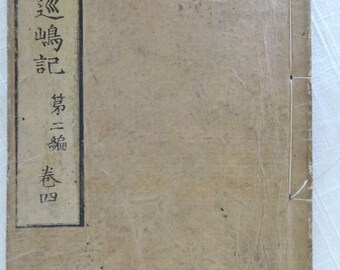 巡嶋記 第二編 卷四